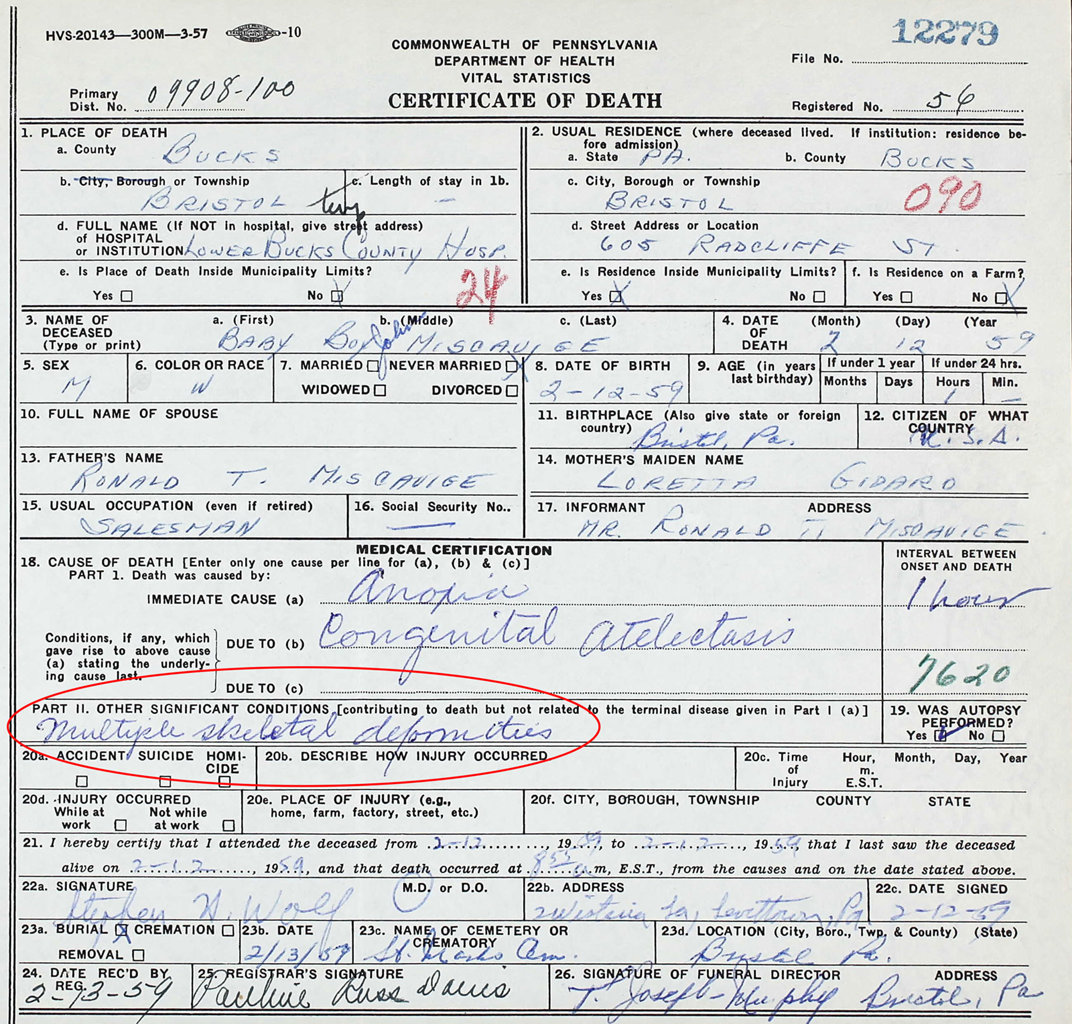 HVS-20143—300M—3-57 -10
12279
COMMONWEALTH OF PENNSYLVANIA
DEPARTMENT OF HEALTH
VITAL STATISTICS
CERTIFICATE OF DEATH
File No.
Primary Dist. No. 09908-100
Registered No. 56
1. PLACE OF DEATH
a. County BUCKS
b. City, Borough or Township BRISTOL twp
c. Length of stay in 1b. —
d. FULL NAME (If NOT in hospital, give street address)
of HOSPITAL
or INSTITUTION LOWER BUCKS COUNTY HOSP.
e. Is Place of Death Inside Municipality Limits?
Yes No X
24
2. USUAL RESIDENCE (where deceased lived. If institution: residence be-
fore admission)
a. State PA. b. County BUCKS
c. City, Borough or Township
BRISTOL
090
d. Street Address or Location
605 RADCLIFFE ST.
e. Is Residence Inside Municipality Limits?
Yes X No
f. Is Residence on a Farm?
Yes No X
3. NAME OF DECEASED (Type or print)
a. (First) b. (Middle) c. (Last)
BABY BOY John MISCAVIGE
4. DATE OF DEATH (Month) (Day) (Year
2 12 59
5. SEX
M
6. COLOR OR RACE
W
7. MARRIED NEVER MARRIED X
WIDOWED DIVORCED
8. DATE OF BIRTH
2-12-59
9. AGE (in years last birthday)
If under 1 year
Months Days
If under 24 hrs.
Hours Min.
1 —
10. FULL NAME OF SPOUSE
11. BIRTHPLACE (Also give state or foreign country)
Bristol, Pa.
12. CITIZEN OF WHAT COUNTRY
U.S.A.
13. FATHER'S NAME
RONALD T. MISCAVIGE
14. MOTHER'S MAIDEN NAME
LORETTA GIDARO
15. USUAL OCCUPATION (even if retired)
SALESMAN
16. Social Security No..
—
17. INFORMANT ADDRESS
MR. RONALD T. MISCAVIGE
MEDICAL CERTIFICATION
18. CAUSE OF DEATH [Enter only one cause per line for (a), (b) & (c)]
PART 1. Death was caused by:
INTERVAL BETWEEN
ONSET AND DEATH
IMMEDIATE CAUSE (a) Anoxia
1 hour
Conditions, if any, which
gave rise to above cause
(a) stating the underly-
ing cause last.
DUE TO (b) Congenital Atelectasis
DUE TO (c)
7620
PART II. OTHER SIGNIFICANT CONDITIONS [contributing to death but not related to the terminal disease given in Part I (a)]
Multiple skeletal deformities
19. WAS AUTOPSY
PERFORMED?
Yes No
20a. ACCIDENT SUICIDE HOMI-
CIDE
20b. DESCRIBE HOW INJURY OCCURRED
20c. Time of Injury Hour, m. E.S.T. Month, Day, Year
20d. INJURY OCCURRED
While at work Not while at work
20e. PLACE OF INJURY (e.g.,
home, farm, factory, street, etc.)
20f. CITY, BOROUGH, TOWNSHIP COUNTY STATE
21. I hereby certify that I attended the deceased from 2-12, 1959, to 2-12, 1959, that I last saw the deceased
alive on 2-12, 1959, and that death occurred at 8 55 a.m, E.S.T., from the causes and on the date stated above.
22a. SIGNATURE M.D. or D.O.
Stephen H. Wolf
22b. ADDRESS
Levittown, Pa
22c. DATE SIGNED
2-12-59
23a. BURIAL X CREMATION
REMOVAL
23b. DATE
2/13/59
23c. NAME OF CEMETERY OR
CREMATORY
St. Marks Cem.
23d. LOCATION (City, Boro., Twp. & County) (State)
Bristol Pa.
24. DATE REC'D BY REG.
2-13-59
25. REGISTRAR'S SIGNATURE
Pauline Russ Davis
26. SIGNATURE OF FUNERAL DIRECTOR ADDRESS
T. Joseph Murphy Bristol, Pa